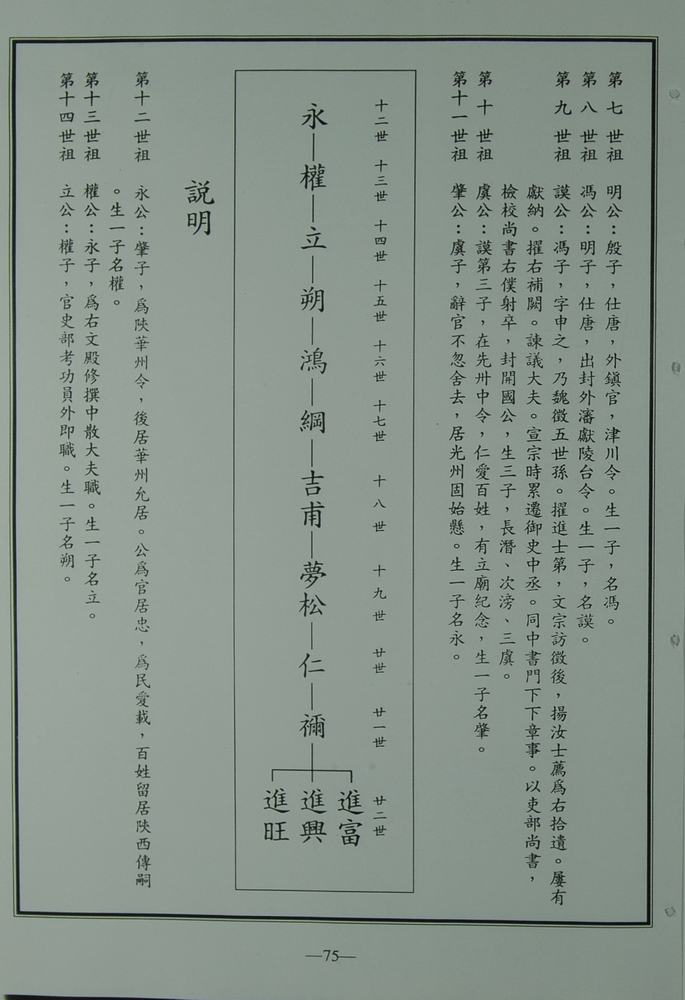 第七世祖　明公：殷子，仕唐，外鎮官，津川令。生一子，名馮。
第八世祖　馮公：明子，仕唐，出封外藩獻陵台令。生一子，名謨。
第九世祖　謨公：馮子，字申之，乃魏徵五世孫。擢進士第，文宗訪徵後，揚汝士薦為右拾遺。屢有
獻納。擢右補闕。諫議大夫。宣宗時累遷御史中丞。同中書門下下章事。以吏部尚書，
檢校尚書右僕射卒，封開國公，生三子，長潛、次滂、三虞。
第十世祖　虞公：謨第三子，在先卅中令，仁愛百姓，有立廟紀念，生一子名肇。
第十一世祖　肇公：虞子，辭官不忽舍去，居光州固始懸。生一子名永。
十二世　十三世　十四世　十五世　十六世　十七世　十八世　十九世　廿世　廿一世　廿二世
永—權—立—朔—鴻—綱—吉甫—夢松—仁—禰
進富
進興
進旺
説明
第十二世祖　永公：肇子，為陝華州令，後居華州允居。公為官居忠，為民愛載，百姓留居陝西傳嗣
。生一子名權。
第十三世祖　權公：永子，為右文殿修撰中散大夫職。生一子名立。
第十四世祖　立公：權子，官史部考功員外即職。生一子名朔。
—75—